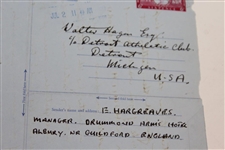 Walter Hagen Esq.
c/o Detroit Athletic Club.
Detroit
Michigan
U.S.A.
Sender's name and address: E. HARGREAVES.
MANAGER. DRUMMOND ARMS HOTR
ALBURY. NR GUILDFORD. ENGLAND.